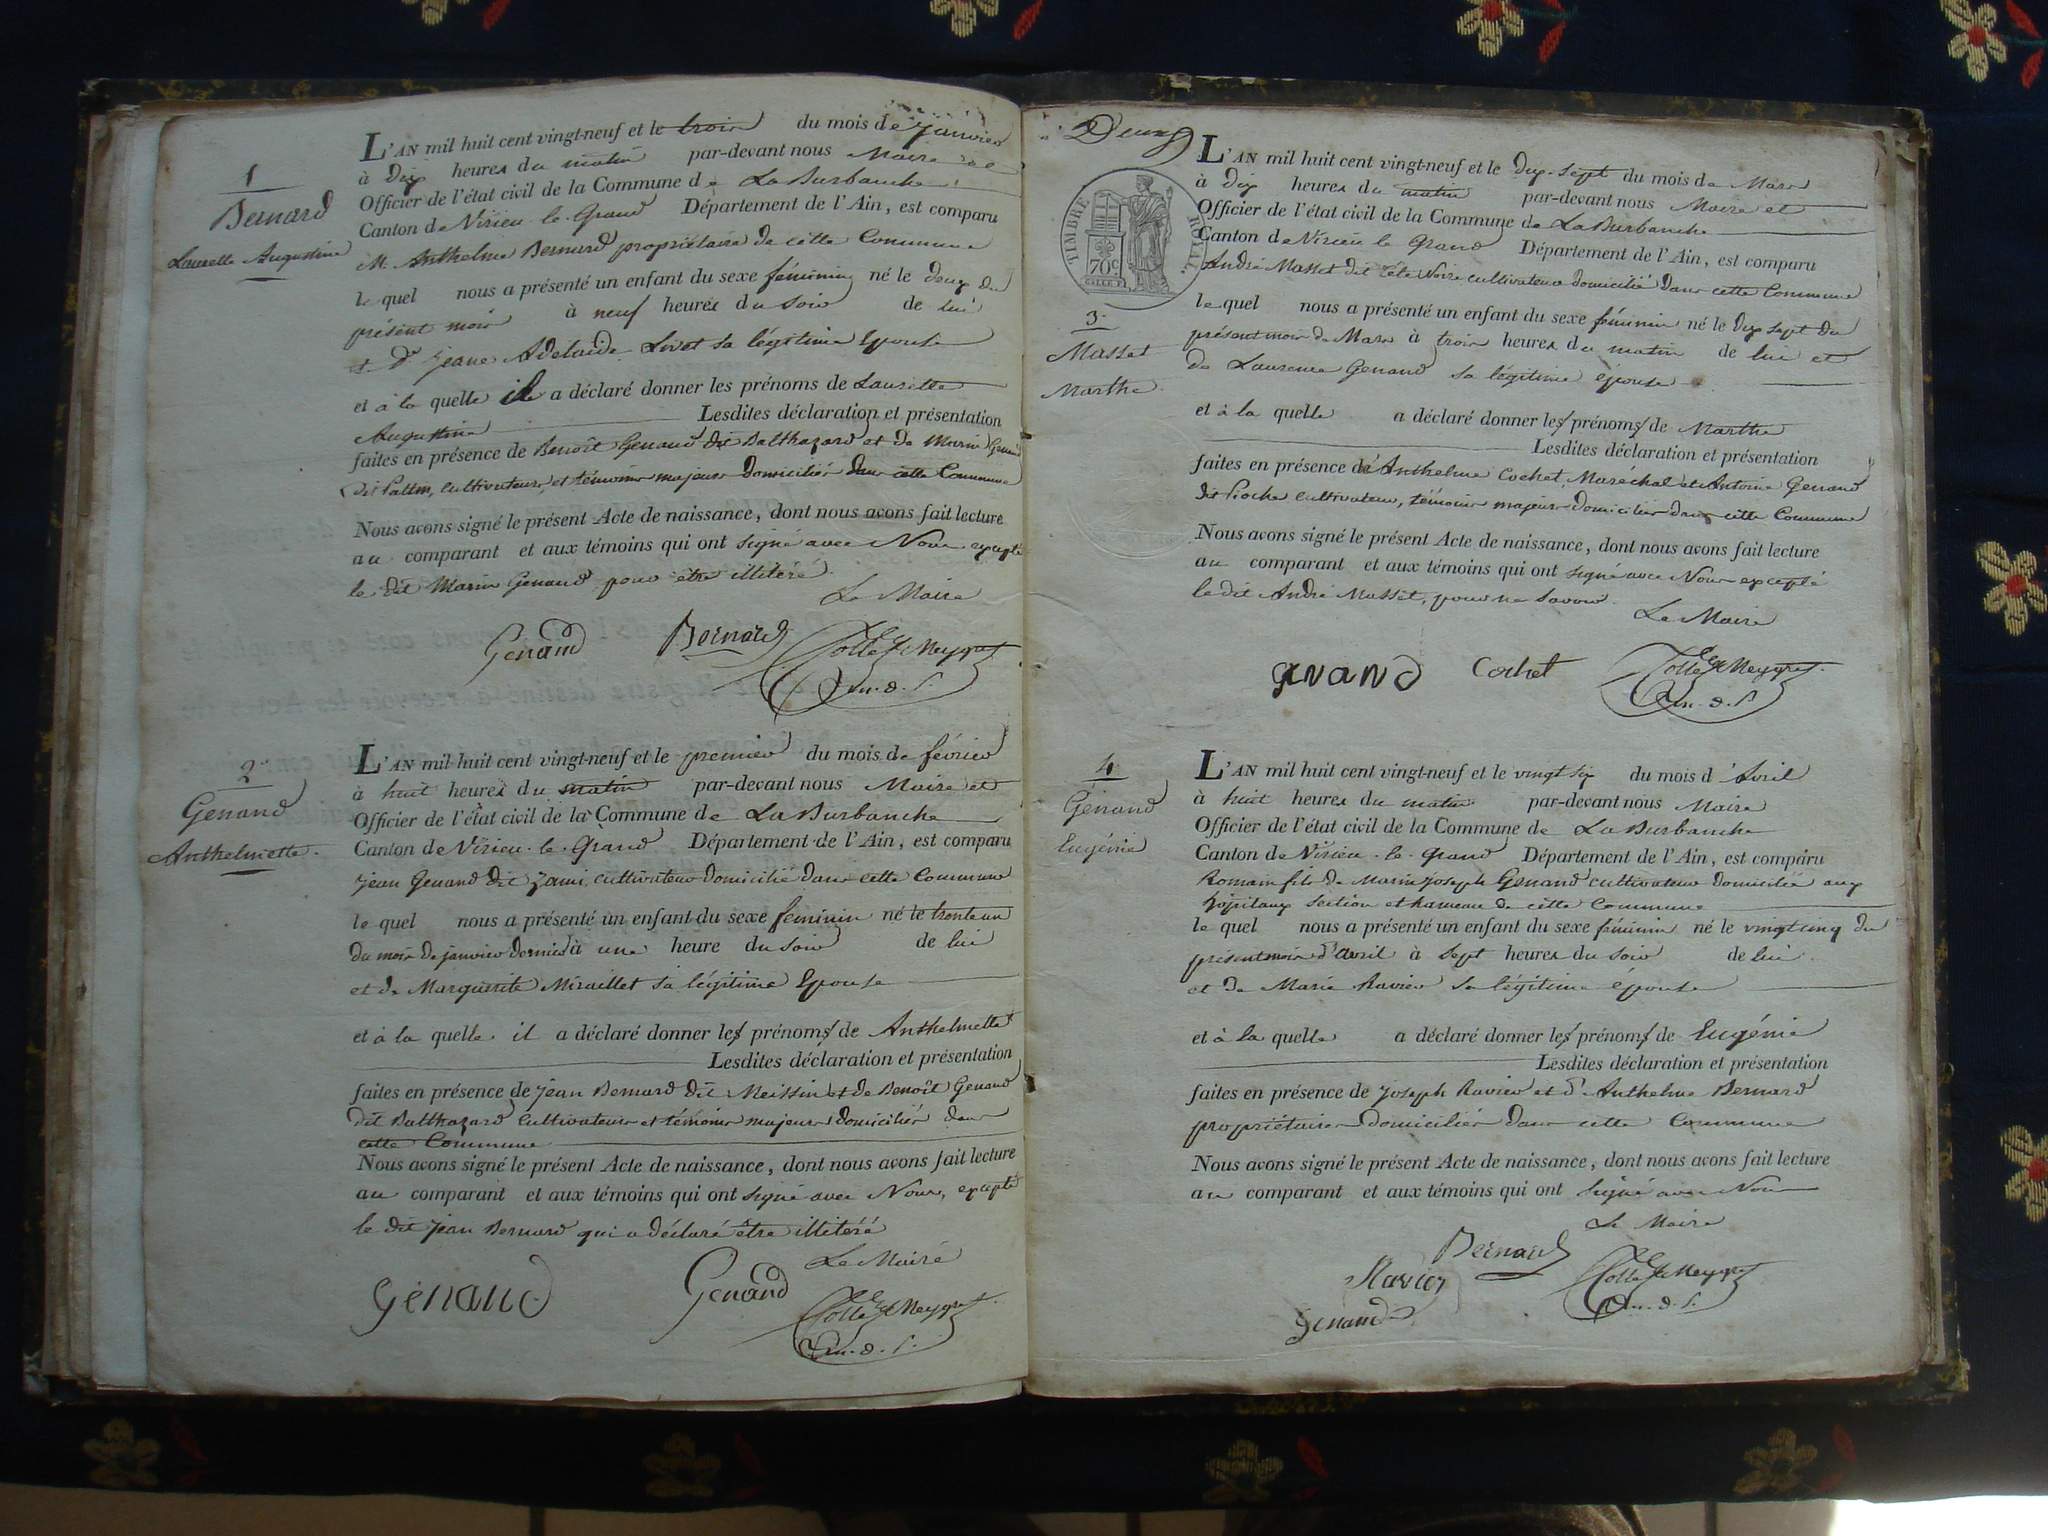 1
Bernard
Laurette Augustine
L'AN mil huit cent vingt-neuf et le trois du mois de janvier
à dix heures du matin par-devant nous Maire
Officier de l'état civil de la Commune de La Burbanche
Canton de Virieu-le-Grand Département de l'Ain, est comparu
M. Anthelme Bernard propriétaire de cette Commune
le quel nous a présenté un enfant du sexe féminin né le deux du
présent mois à neuf heures du soir de lui
et de Jeane Adelaide Livet sa légitime Epouse
et à la quelle il a déclaré donner les prénoms de Laurette
Augustine Lesdites déclaration et présentation
faites en présence de Benoît Genand dit Balthazard et de Marin Genand
dit cultivateurs, et témoins majeurs domiciliés dans cette Commune
Nous avons signé le présent Acte de naissance, dont nous avons fait lecture
au comparant et aux témoins qui ont signé avec Nous excepté
le dit Marin Genand pour être illitéré.
Le Maire
Genand Bernard
2
Genand
Anthelmette.
L'AN mil huit cent vingt-neuf et le premier du mois de février
à huit heures du matin par-devant nous Maire et
Officier de l'état civil de la Commune de La Burbanche
Canton de Virieu-le-Grand Département de l'Ain, est comparu
Jean Genand dit Jami, cultivateur domicilié dans cette Commune
le quel nous a présenté un enfant du sexe feminin né le trente un
du mois de janvier dernier à une heure du soir de lui
et de Marguerite Miraillet sa légitime Epouse
et à la quelle il a déclaré donner les prénoms de Anthelmette
Lesdites déclaration et présentation
faites en présence de Jean Bernard dit Meissin et de Benoît Genand
dit Balthazard cultivateurs et témoins majeurs domiciliés dans
cette Commune
Nous avons signé le présent Acte de naissance, dont nous avons fait lecture
au comparant et aux témoins qui ont signé avec Nous, excepté
le dit Jean Bernard qui a déclaré être illitéré
Le Maire
Génand Genand
Deux
TIMBRE ROYAL
70c
3
Masset
Marthe
L'AN mil huit cent vingt-neuf et le dix-sept du mois de Mars
à dix heures du matin par-devant nous Maire et
Officier de l'état civil de la Commune de La Burbanche
Canton de Virieu le Grand Département de l'Ain, est comparu
André Masset dit Tête Noire cultivateur domicilié dans cette Commune
le quel nous a présenté un enfant du sexe féminin né le dix sept du
présent mois de Mars à trois heures du matin de lui et
de Laurence Genand sa légitime épouse
et à la quelle a déclaré donner les prénoms de Marthe
Lesdites déclaration et présentation
faites en présence de Anthelme Cochet, Maréchal et Antoine Genand
dit Pioche cultivateur, témoins majeurs domiciliés dans cette Commune
Nous avons signé le présent Acte de naissance, dont nous avons fait lecture
au comparant et aux témoins qui ont signé avec Nous excepté
le dit André Masset, pour ne savoir.
Le Maire
Cochet
4
Génand
Eugénie
L'AN mil huit cent vingt-neuf et le vingt six du mois d'Avril
à huit heures du matin par-devant nous Maire
Officier de l'état civil de la Commune de La Burbanche
Canton de Virieu-le-Grand Département de l'Ain, est comparu
Romain fils de Marin Joseph Genand cultivateur domicilié aux
hôpitaux section et hameau de cette Commune
le quel nous a présenté un enfant du sexe féminin né le vingt cinq du
présent mois d'avril à sept heures du soir de lui
et de Marie Ravier sa légitime épouse
et à la quelle a déclaré donner les prénoms de Eugénie
Lesdites déclaration et présentation
faites en présence de Joseph Ravier et d'Anthelme Bernard
propriétaires domiciliés dans cette Commune
Nous avons signé le présent Acte de naissance, dont nous avons fait lecture
au comparant et aux témoins qui ont signé avec Nous
Le Maire
Bernard
Ravier
Genand